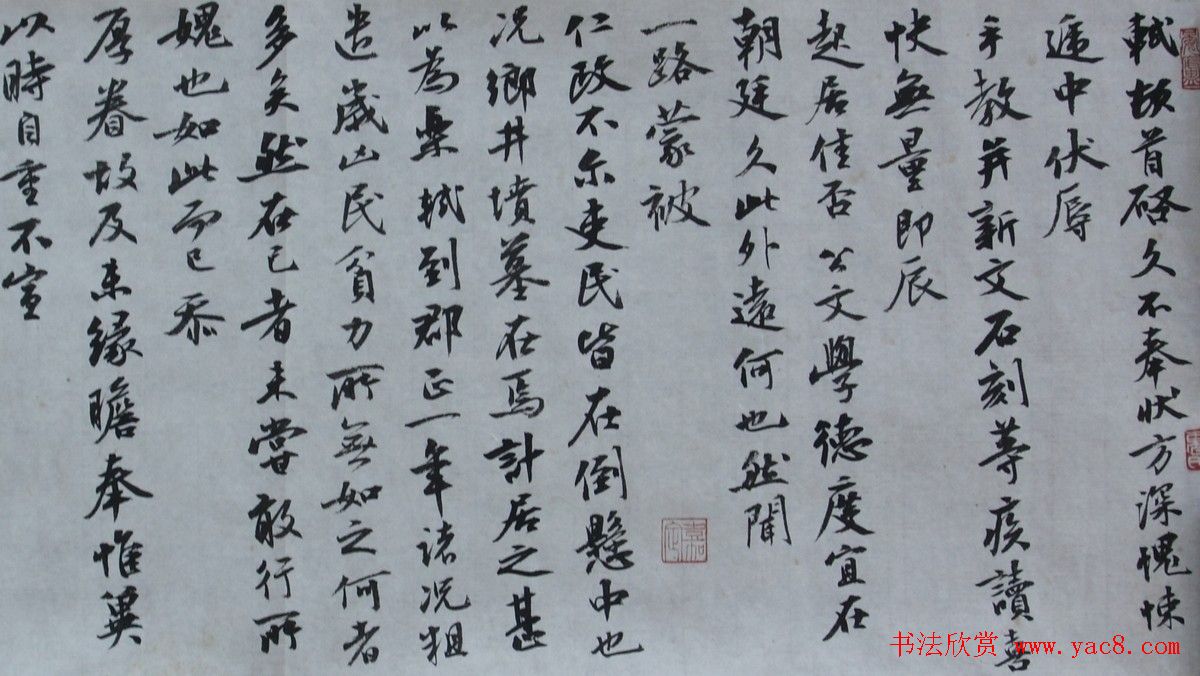 軾頓首啓久不奉狀方深愧悚
遞中伏辱
手教并新文石刻等疾讀喜
快無量即辰
起居佳否公文學德度宜在
朝廷久此外遠何也然聞
一路蒙被
仁政不尒吏民皆在倒懸中也
况鄉井墳墓在焉計居之甚
以為樂軾到郡正一年諸況粗
遣歲凶民貧力所無如之何者
多矣然在己者未嘗敢行所
媿也如此而已忝
厚眷故及未緣瞻奉惟冀
以時自重不宣
书法欣赏 www.yac8.com